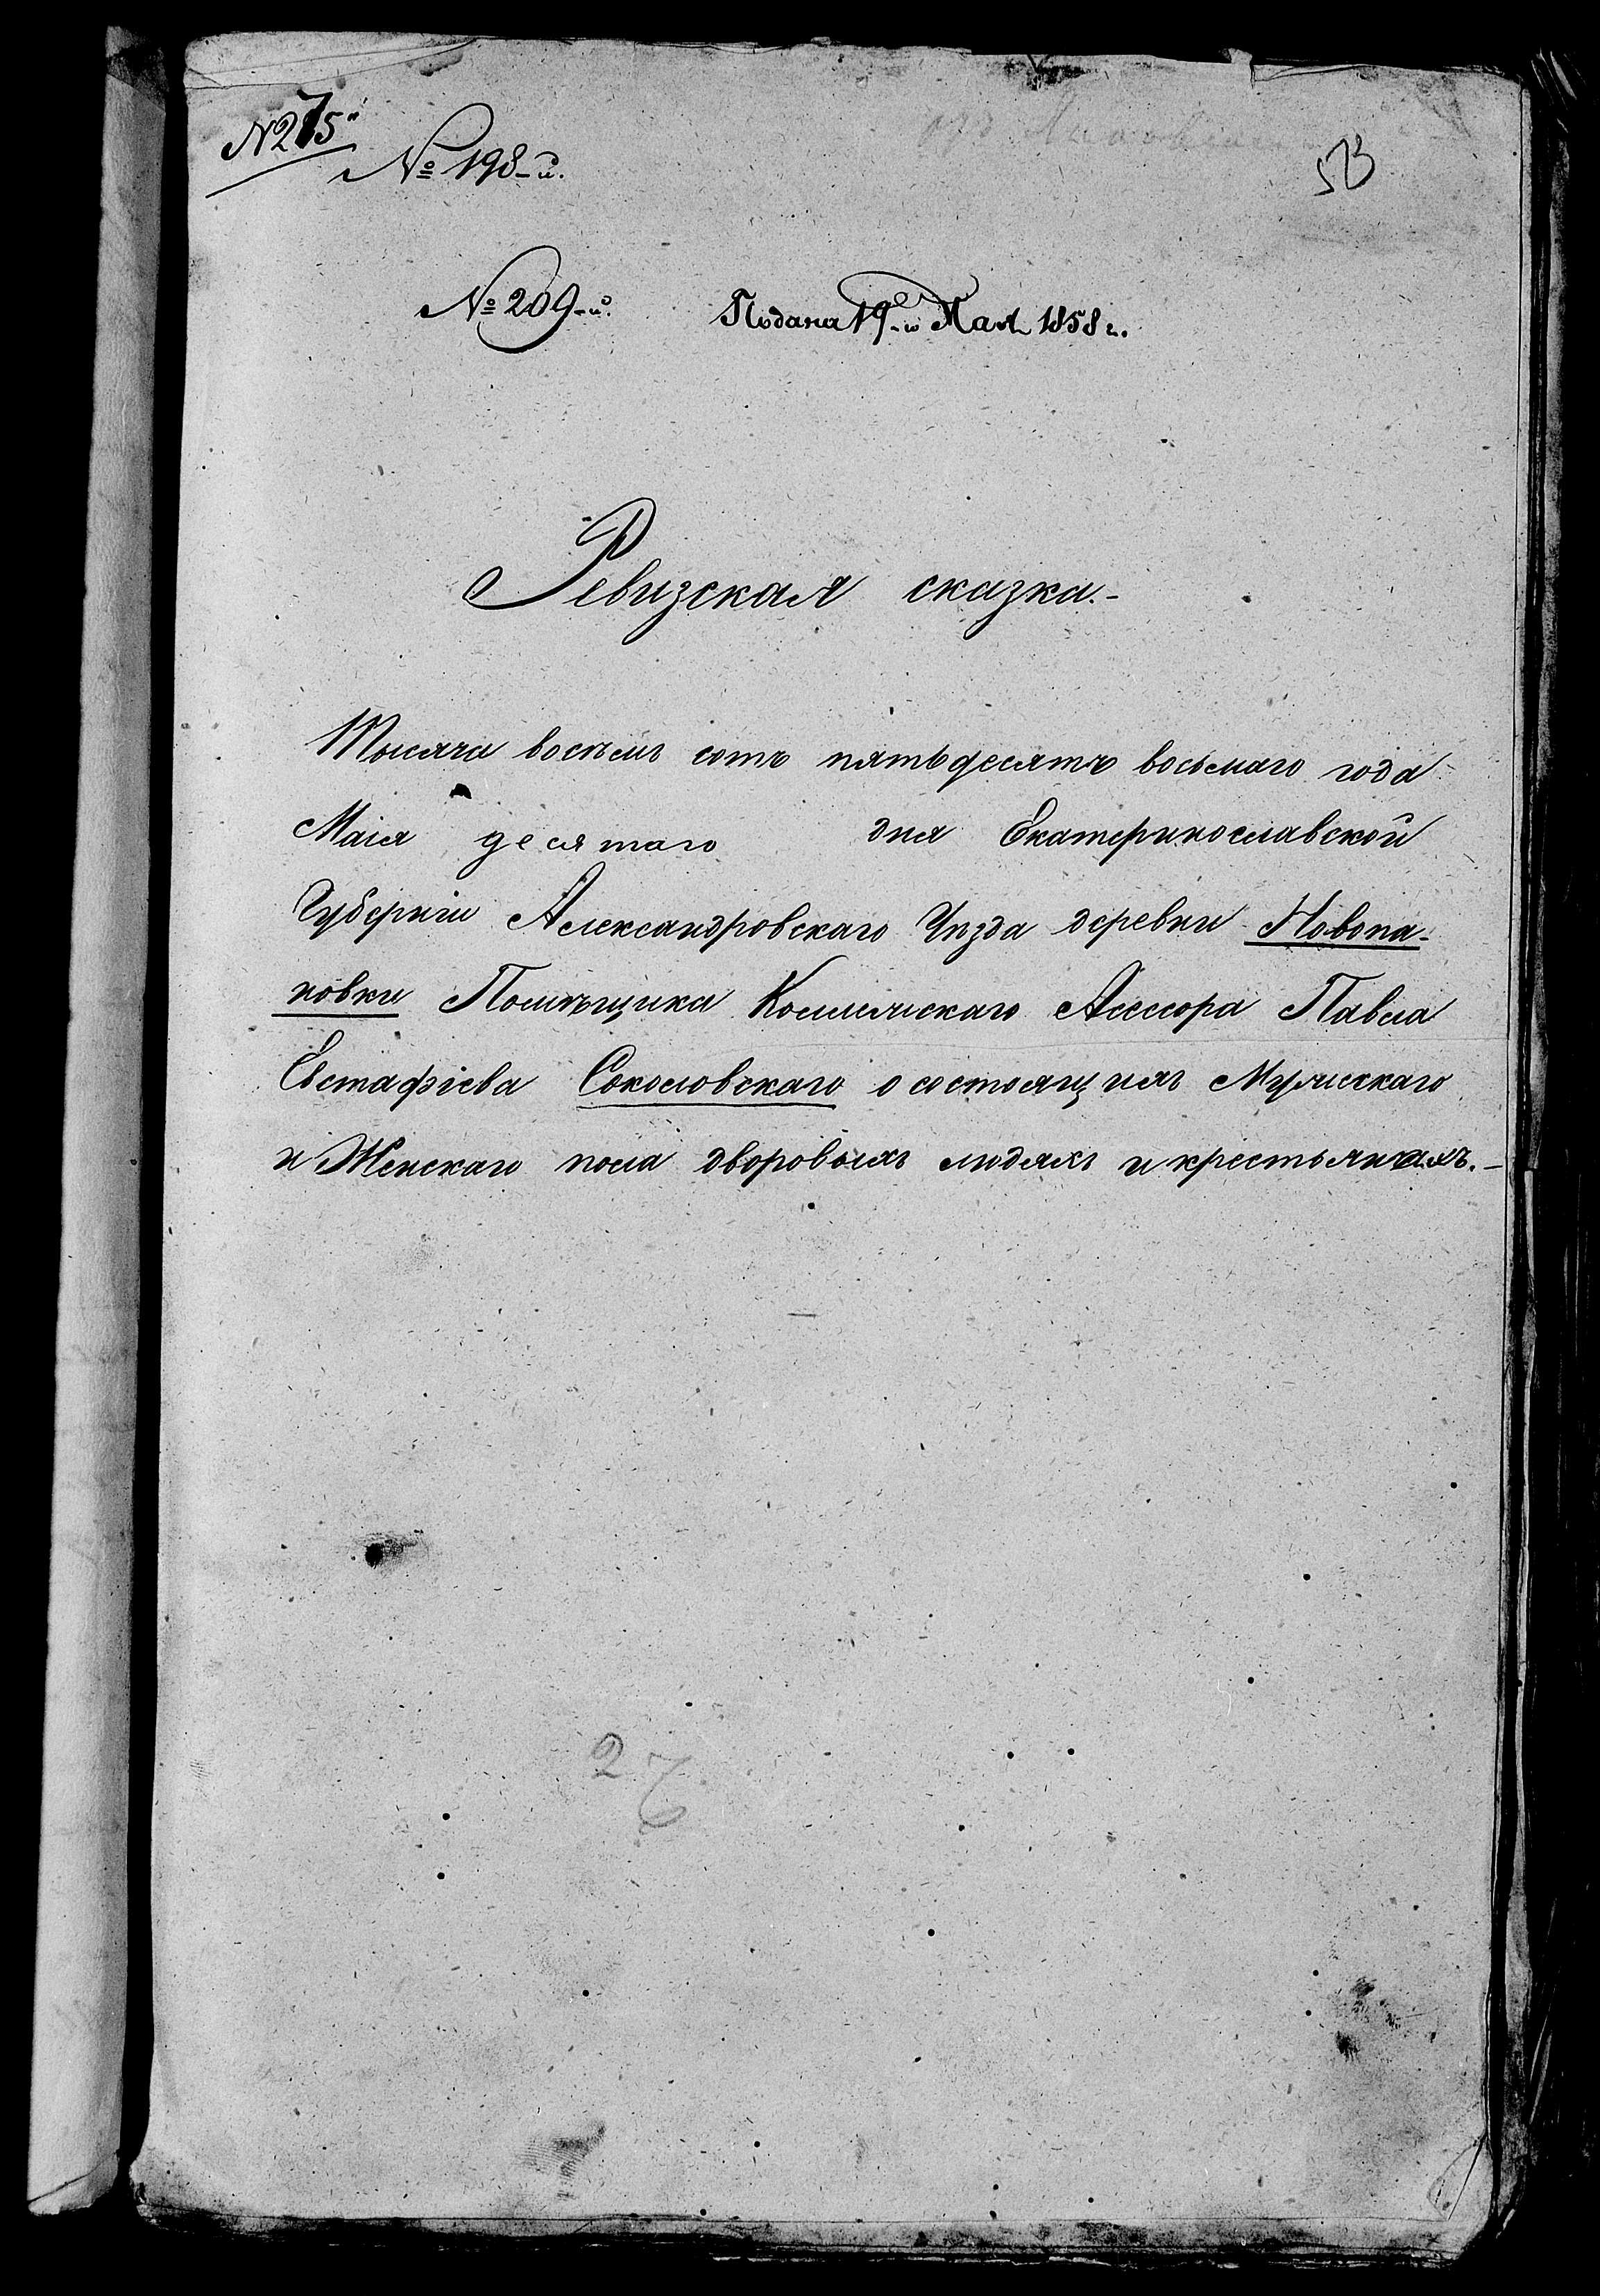 №275
№198-й.
573
№209-й. Подана 19-го Мая 1858 г.
Ревизская сказка.-
Тысяча восѣмъ сотъ пятьдесятъ восьмаго года
Маія десятаго дня Екатеринославской
Губерніи Александровскаго Уѣзда деревни Новопа-
новки Помѣщика Коллежскаго Асессора Павла
Евстафіева Соколовскаго о состоящихъ Мужескаго
и Женскаго пола дворовыхъ людяхъ и крестьянахъ.-
26